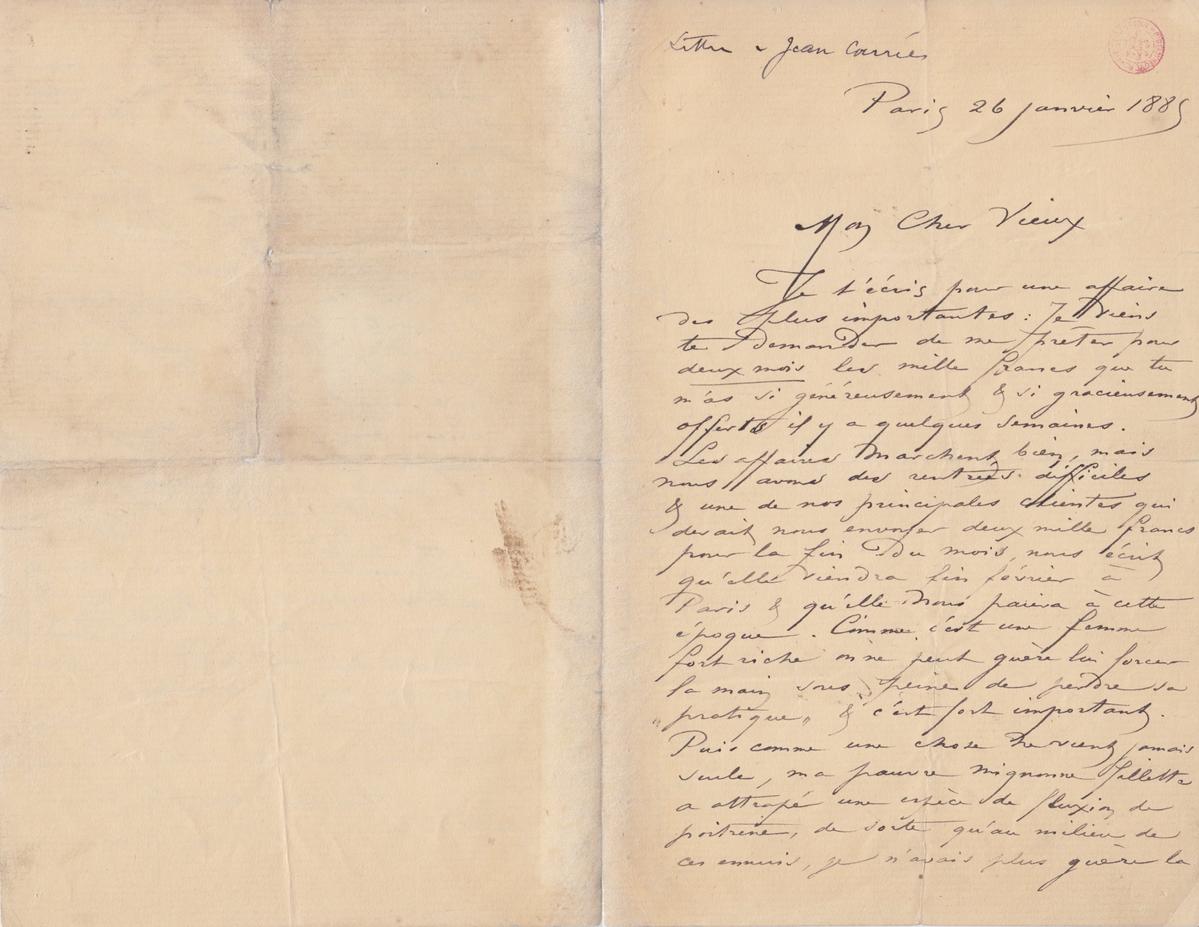 Lettre à Jean Carriès
Paris 26 janvier 1885
Mon Cher Vieux
Je t'écris pour une affaire
des plus importantes : Je viens
te demander de me prêter pour
deux mois les mille francs que tu
m'as si généreusement & si gracieusement
offerts il y a quelques semaines.
Les affaires marchent bien, mais
nous avons des rentrées difficiles
& une de nos principales clientes qui
devait nous envoyer deux mille francs
pour la fin du mois, nous écrit
qu'elle viendra fin février à
Paris & qu'elle nous paiera à cette
époque. Comme c'est une femme
fort riche on ne peut guère lui forcer
la main sous peine de perdre sa
"pratique" & c'est fort important.
Puis comme une chose ne vient jamais
seule, ma pauvre mignonne Gillette
a attrapé une espèce de fluxion de
poitrine, de sorte qu'au milieu de
ces ennuis, je n'avais plus guère la